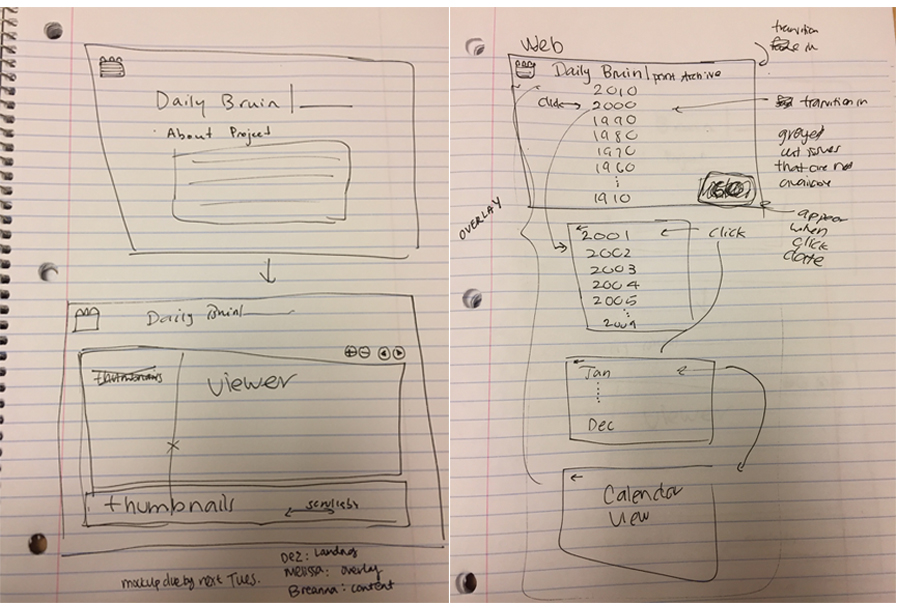 Daily Bruin|
About Project
Daily Bruin|
thumbnails
viewer
thumbnails
scrollable
mockup due by next Tues.
Dez: Landing
Melissa: overlay
Breanna: content
Web
transition
in
Daily Bruin| print Archive
2010
click
2000
transition in
1990
1980
1970
1960
1910
grayed
out issues
that are not
available
OVERLAY
appear
when
click
date
2001
click
2002
2003
2004
2005
2009
Jan
Dec
Calendar
View